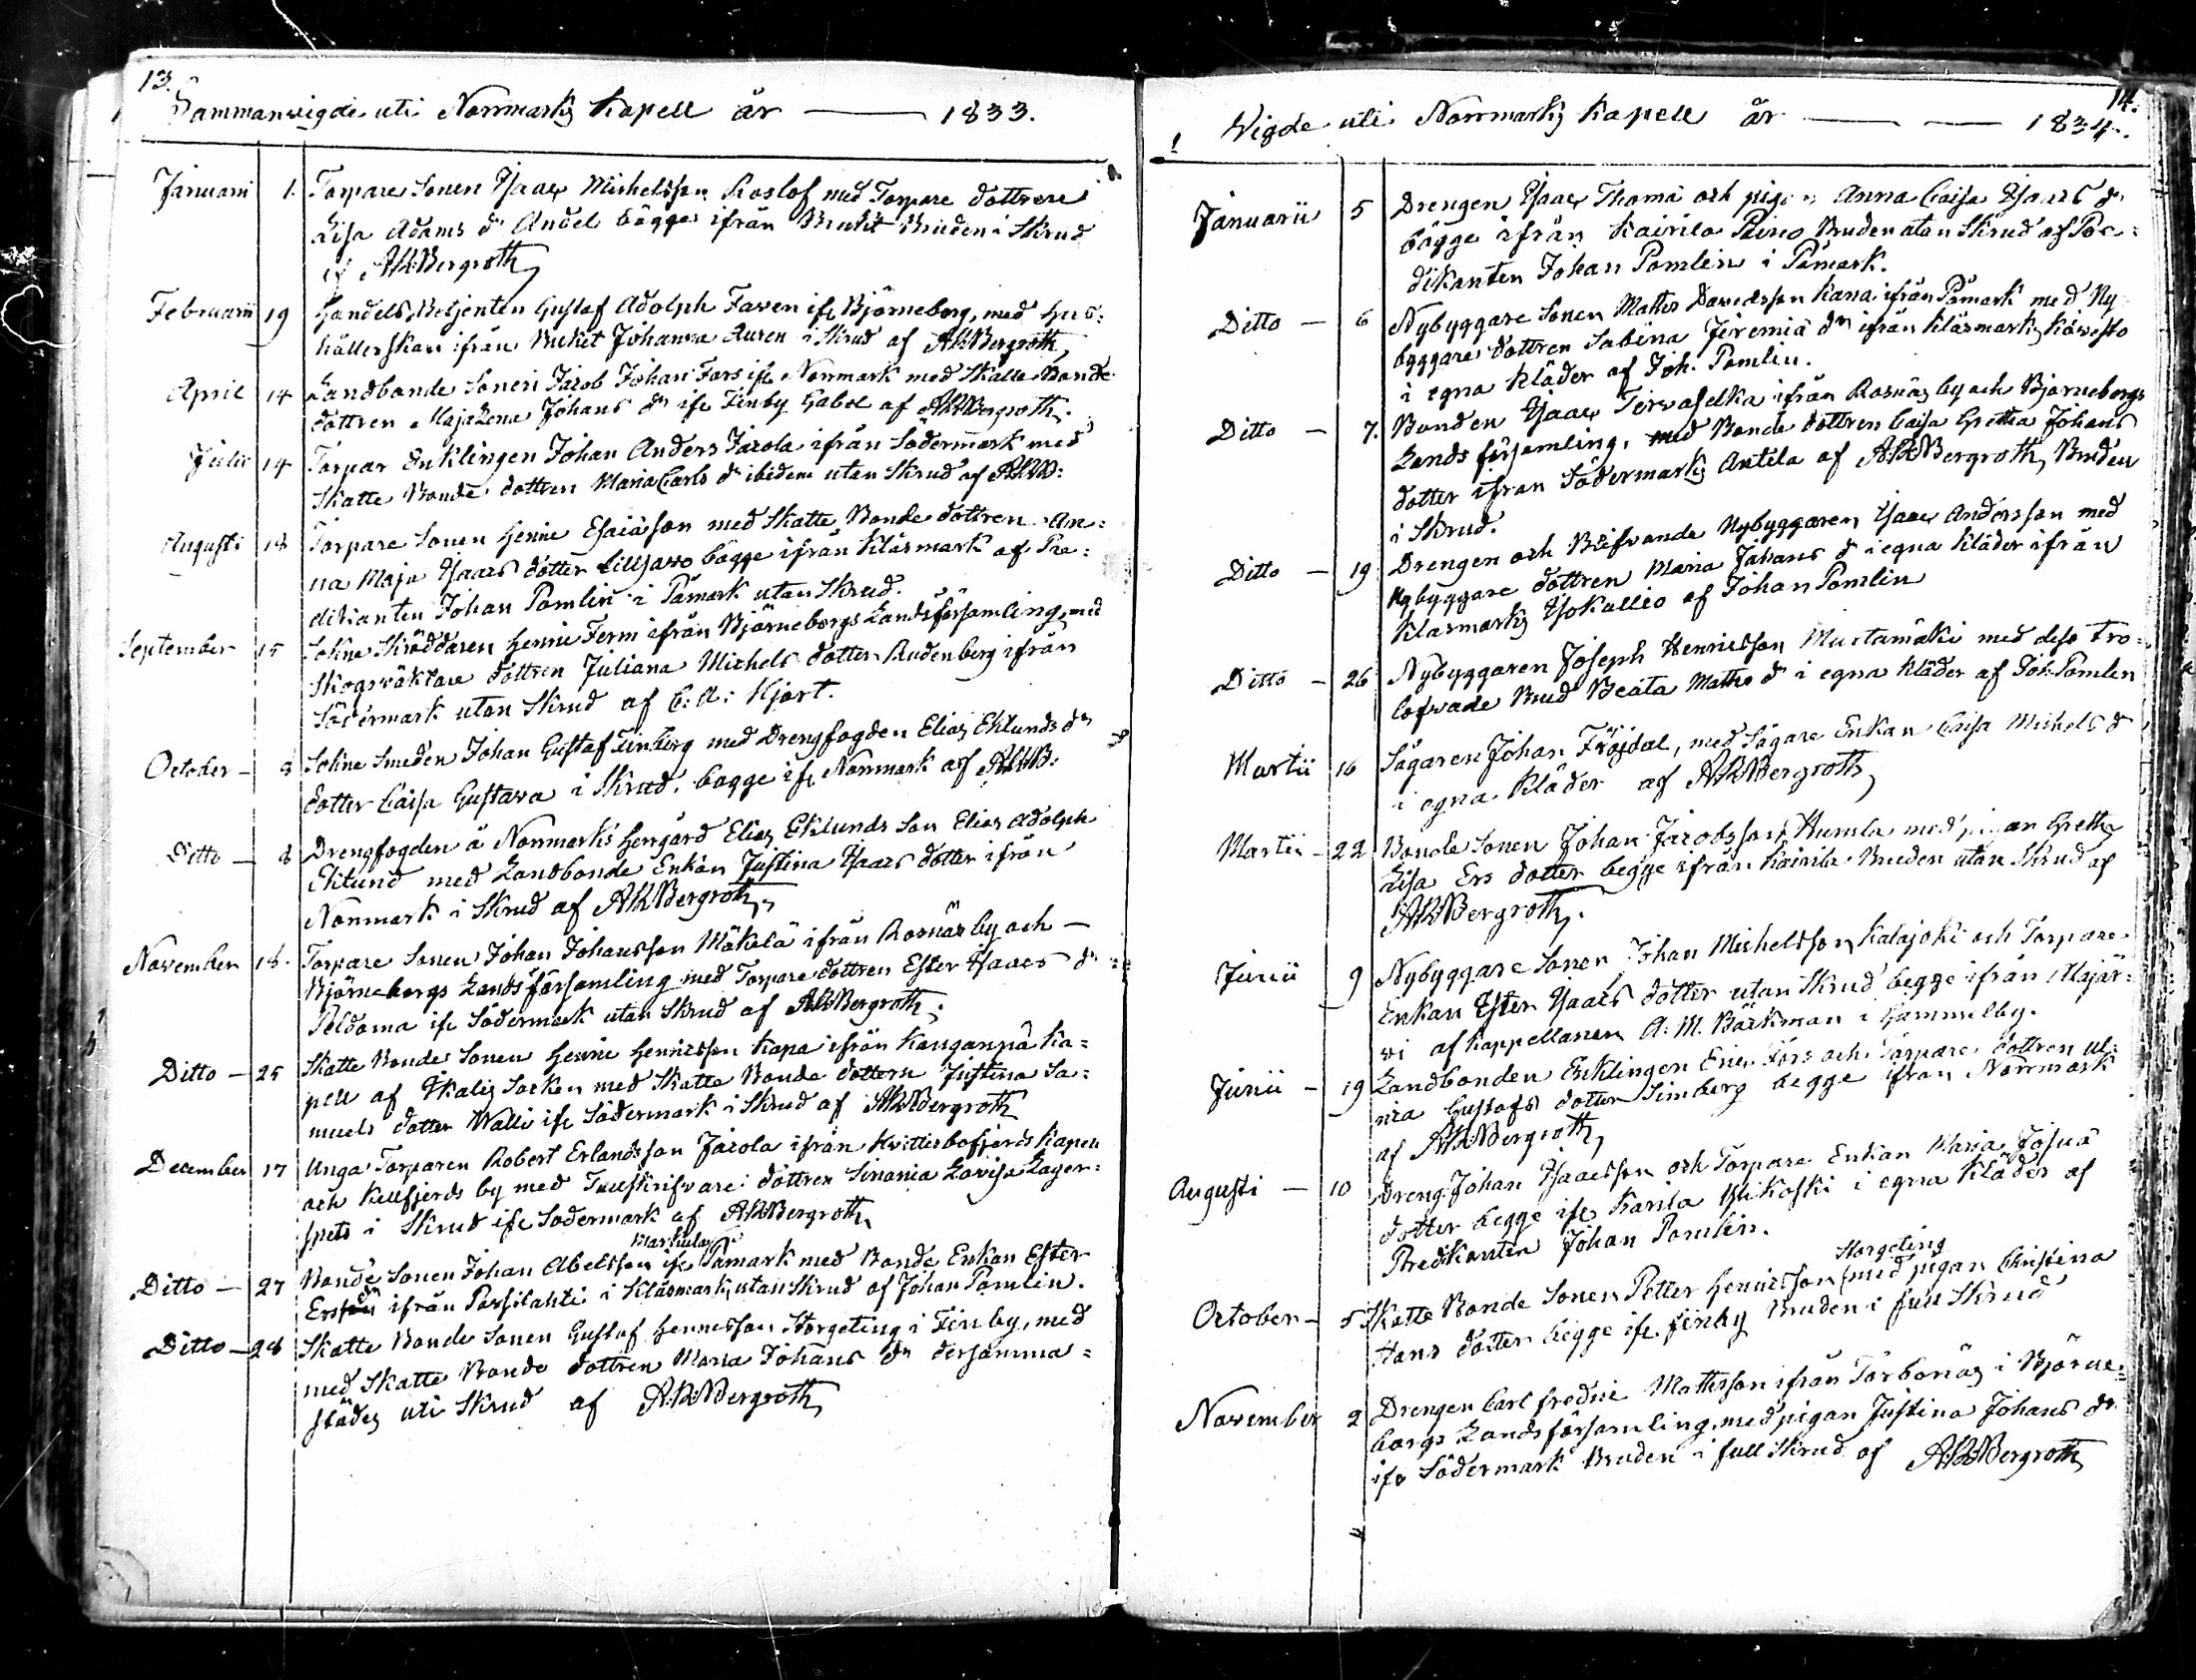 13.
Sammanvigde uti Norrmarks Kapell år — 1833.
Januarii 1. Torpare Sonen Isaac Michelsson Roslof med Torpare dottren
Lisa Adams dr Andel bägge ifrån Bruket Bruden i Skrud
af A:R:Bergroth
Februarii 19 Handels Betjenten Gustaf Adolph Faven ifr Björneborg, med Hus-
hållerskan ifrån Bruket Johanna Auren i Skrud af A:R:Bergroth
April 14 Landbonde Sonen Jacob Johan Fors ifr Norrmark med Skatte Bonde
dottren Maja Lena Johans dr ifr Finby Gabel af A:R:Bergroth.
Julii 14 Torpar Enklingen Johan Anders Jacola ifrån Södermark med
Skatte Bonde dottren Maria Carls dr ibidem utan Skrud af A:R:B:
Augusti 18 Torpare Sonen Henric Esaiasson med Skatte Bonde dottren An-
na Maja Isaacs dotter Lilljaro bägge ifrån Klåsmark af Pre-
dikanten Johan Pomlin i Påmark utan Skrud.
September 15 Sokne Skräddaren Henric Ferm ifrån Björneborgs Landsförsamling, med
Skogväktare dottren Juliana Michels dotter Rudenberg ifrån
Södermark utan Skrud af C: A: Kjort.
October — 8 Sokne Smeden Johan Gustaf Simberg med Drengfogden Elias Eklunds dr
dotter Caisa Gustava i Skrud, bägge ifr Norrmark af A:R:B:
Ditto — 8 Drengfogden å Norrmarks Herrgård Elias Eklunds Son Elias Adolph
Eklund med Landbonde Enkan Justina Isaacs dotter ifrån
Norrmark i Skrud af A:R:Bergroth,
November 18. Torpare Sonen Johan Johansson Mäkelä ifrån Rosnäs by och —
Björneborgs Landsförsamling med Torpare dottren Ester Isaacs dr
Peldoma ifr Södermark utan Skrud af A:R:Bergroth.
Ditto — 25 Skatte Bonde Sonen Henric Henricsson Kapa ifrån Kanganpä Ka-
pell af Ikalis Socken med Skatte Bonde dottern Justina Sa-
muels dotter Walli ifr Södermark i Skrud af A:R:Bergroth
December 17 Unga Torparen Robert Erlandsson Jacola ifrån Hvittisbofjerds Kapell
och Kellfjerds by med Tullskrifvare dottren Sinania Lovisa Lager-
spets i Skrud ifr Södermark af A:R:Bergroth
Markula
Ditto — 27 Bonde Sonen Johan Abelsson ifr Påmark med Bonde Enkan Ester
Ers dr ifrån Porsilahti i Klåsmark, utan Skrud af Johan Pomlin.
Ditto — 28 Skatte Bonde Sonen Gustaf Henricsson Storgeting i Finby, med
med Skatte Bonde dottren Maria Johans dr dersamma-
städes uti Skrud af A:R:Bergroth
14.
Vigde uti Norrmarks Kapell år — — 1834.
Januarii 5 Drengen Isaac Thoma och pigan Anna Caisa Isaacs dr
bägge ifrån Kairila Bruden utan Skrud af Pre-
dikanten Johan Pomlin i Påmark.
Ditto — 6 Nybyggare Sonen Matts Davidsson Kana ifrån Påmark med Ny
byggare dottren Sabina Jeremiä dr ifrån Klåsmarks
i egna Kläder af Joh. Pomlin.
Ditto — 7. Bonden Isaac Tervaselka ifrån Rosnäs by och Björneborgs
Lands församling, med Bonde dottren Caisa Gretha Johans
dotter ifrån Södermarks Antila af A:R:Bergroth, Bruden
i Skrud.
Ditto — 19 Drengen och Blifvande Nybyggaren Isaac Andersson med
Nybyggare dottren Maria Johans dr i egna Kläder ifrån
Klåsmarks Isokallio af Johan Pomlin
Ditto — 26 Nybyggaren Joseph Henricsson Mustamäki med dess tro-
lofvade Brud Beata Matts dr i egna Kläder af Joh. Pomlin
Martii 16 Sågaren Johan Fröjdal, med Sågare Enkan Caisa Michels dr
i egna Kläder af A:R:Bergroth
Martii — 22 Bonde Sonen Johan Jacobsson Humla med pigan Greta
Lisa Ers dotter begge ifrån Kairila Bruden utan Skrud af
A:R:Bergroth.
Junii 9 Nybyggare Sonen Johan Michelsson Kalajoki och Torpare
Enkan Ester Isaacs dotter utan Skrud begge ifrån Majär-
vi af Kappellanen A: M. Bäckman i Gammelby.
Junii — 19 Landbonden Enklingen Eric Fors och Torpare dottren Ul-
rica Gustafs dotter Simberg begge ifrån Norrmark
af A:R:Bergroth
Augusti — 10 Dreng. Johan Isaacsson och Torpare Enkan Maria Josua
dotter begge ifr Karila Ylikoski i egna Kläder af
Predkanten Johan Pomlin.
Storgeting
October — 5 Skatte Bonde Sonen Petter Henricsson (med pigan Christina
Hans dotter begge ifr finby Bruden i full Skrud
November 2 Drengen Carl fredric Mattsson ifrån Torbonäs i Björne-
borgs Landsförsamling, med pigan Justina Johans dr
ifr Södermark Bruden i full Skrud af A:R:Bergroth